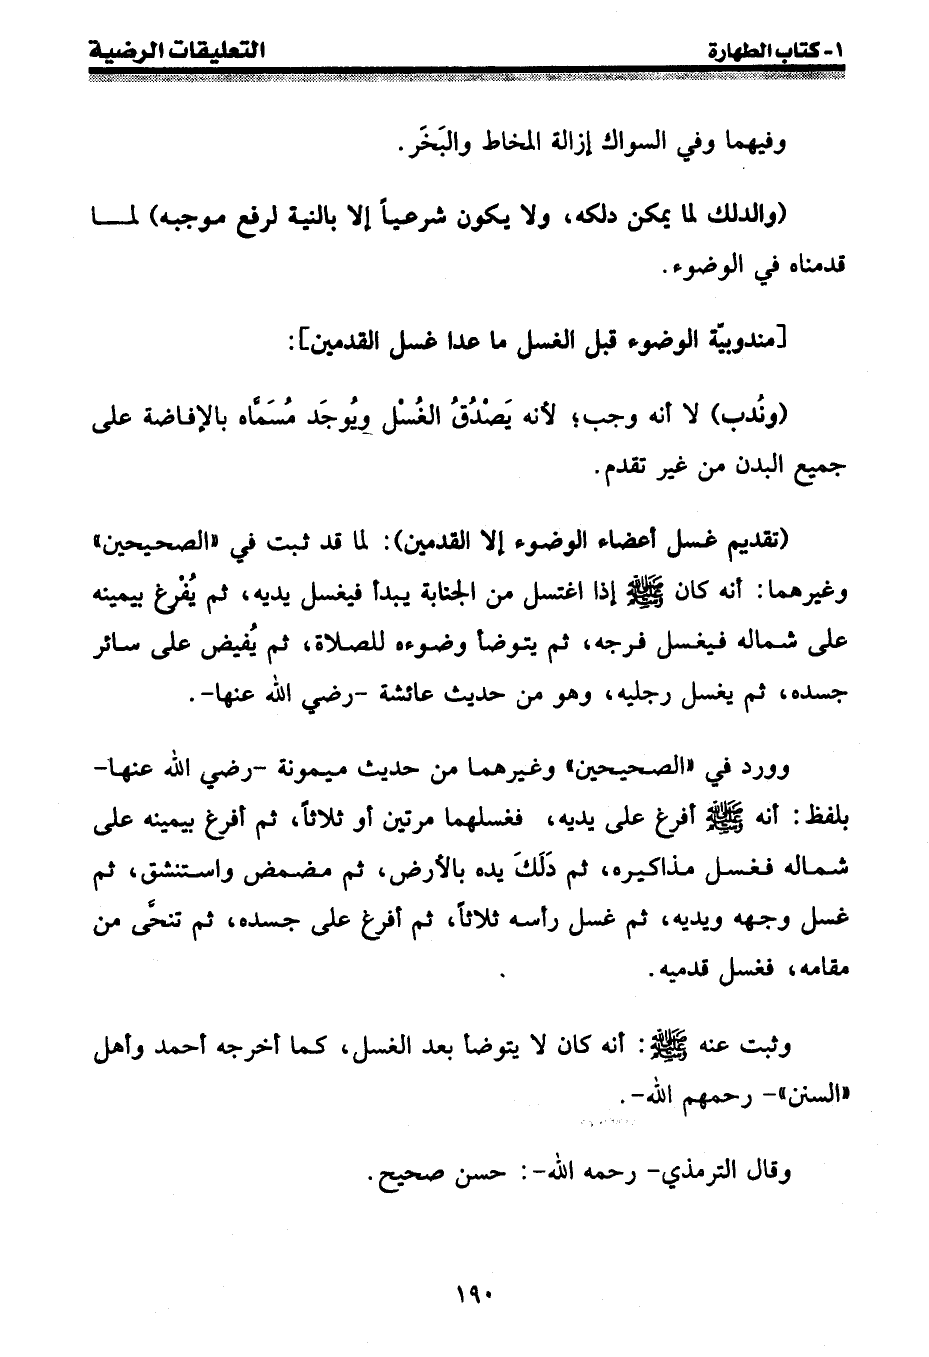 ١- كتاب الطهارة التعليقات الرضية
وفيهما وفي السواك إزالة المخاط والبَخَر.
(والدلك لما يمكن دلكه، ولا يكون شرعياً إلا بالنية لرفع موجبه) لمـا
قدمناه في الوضوء.
[مندوبيّة الوضوء قبل الغسل ما عدا غسل القدمين]:
(ونُدب) لا أنه وجب؛ لأنه يَصْدُقُ الغُسْل ويُوجَد مُسَمَّاه بالإفاضة على
جميع البدن من غير تقدم.
(تقديم غسل أعضاء الوضوء إلا القدمين): لما قد ثبت في «الصحيحين»
وغيرهما: أنه كان ﷺ إذا اغتسل من الجنابة يبدأ فيغسل يديه، ثم يُفْرغ بيمينه
على شماله فيغسل فرجه، ثم يتوضأ وضوءه للصلاة، ثم يُفيض على سائر
جسده، ثم يغسل رجليه، وهو من حديث عائشة -رضي الله عنها-.
وورد في «الصحيحين» وغيرهما من حديث ميمونة -رضي الله عنها-
بلفظ: أنه ﷺ أفرغ على يديه، فغسلهما مرتين أو ثلاثاً، ثم أفرغ بيمينه على
شماله فغسل مذاكيره، ثم دَلَكَ يده بالأرض، ثم مضمض واستنشق، ثم
غسل وجهه ويديه، ثم غسل رأسه ثلاثاً، ثم أفرغ على جسده، ثم تنحَّى من
مقامه، فغسل قدميه.
وثبت عنه ﷺ: أنه كان لا يتوضأ بعد الغسل، كما أخرجه أحمد وأهل
«السنن»- رحمهم الله-.
وقال الترمذي- رحمه الله-: حسن صحيح.
١٩٠